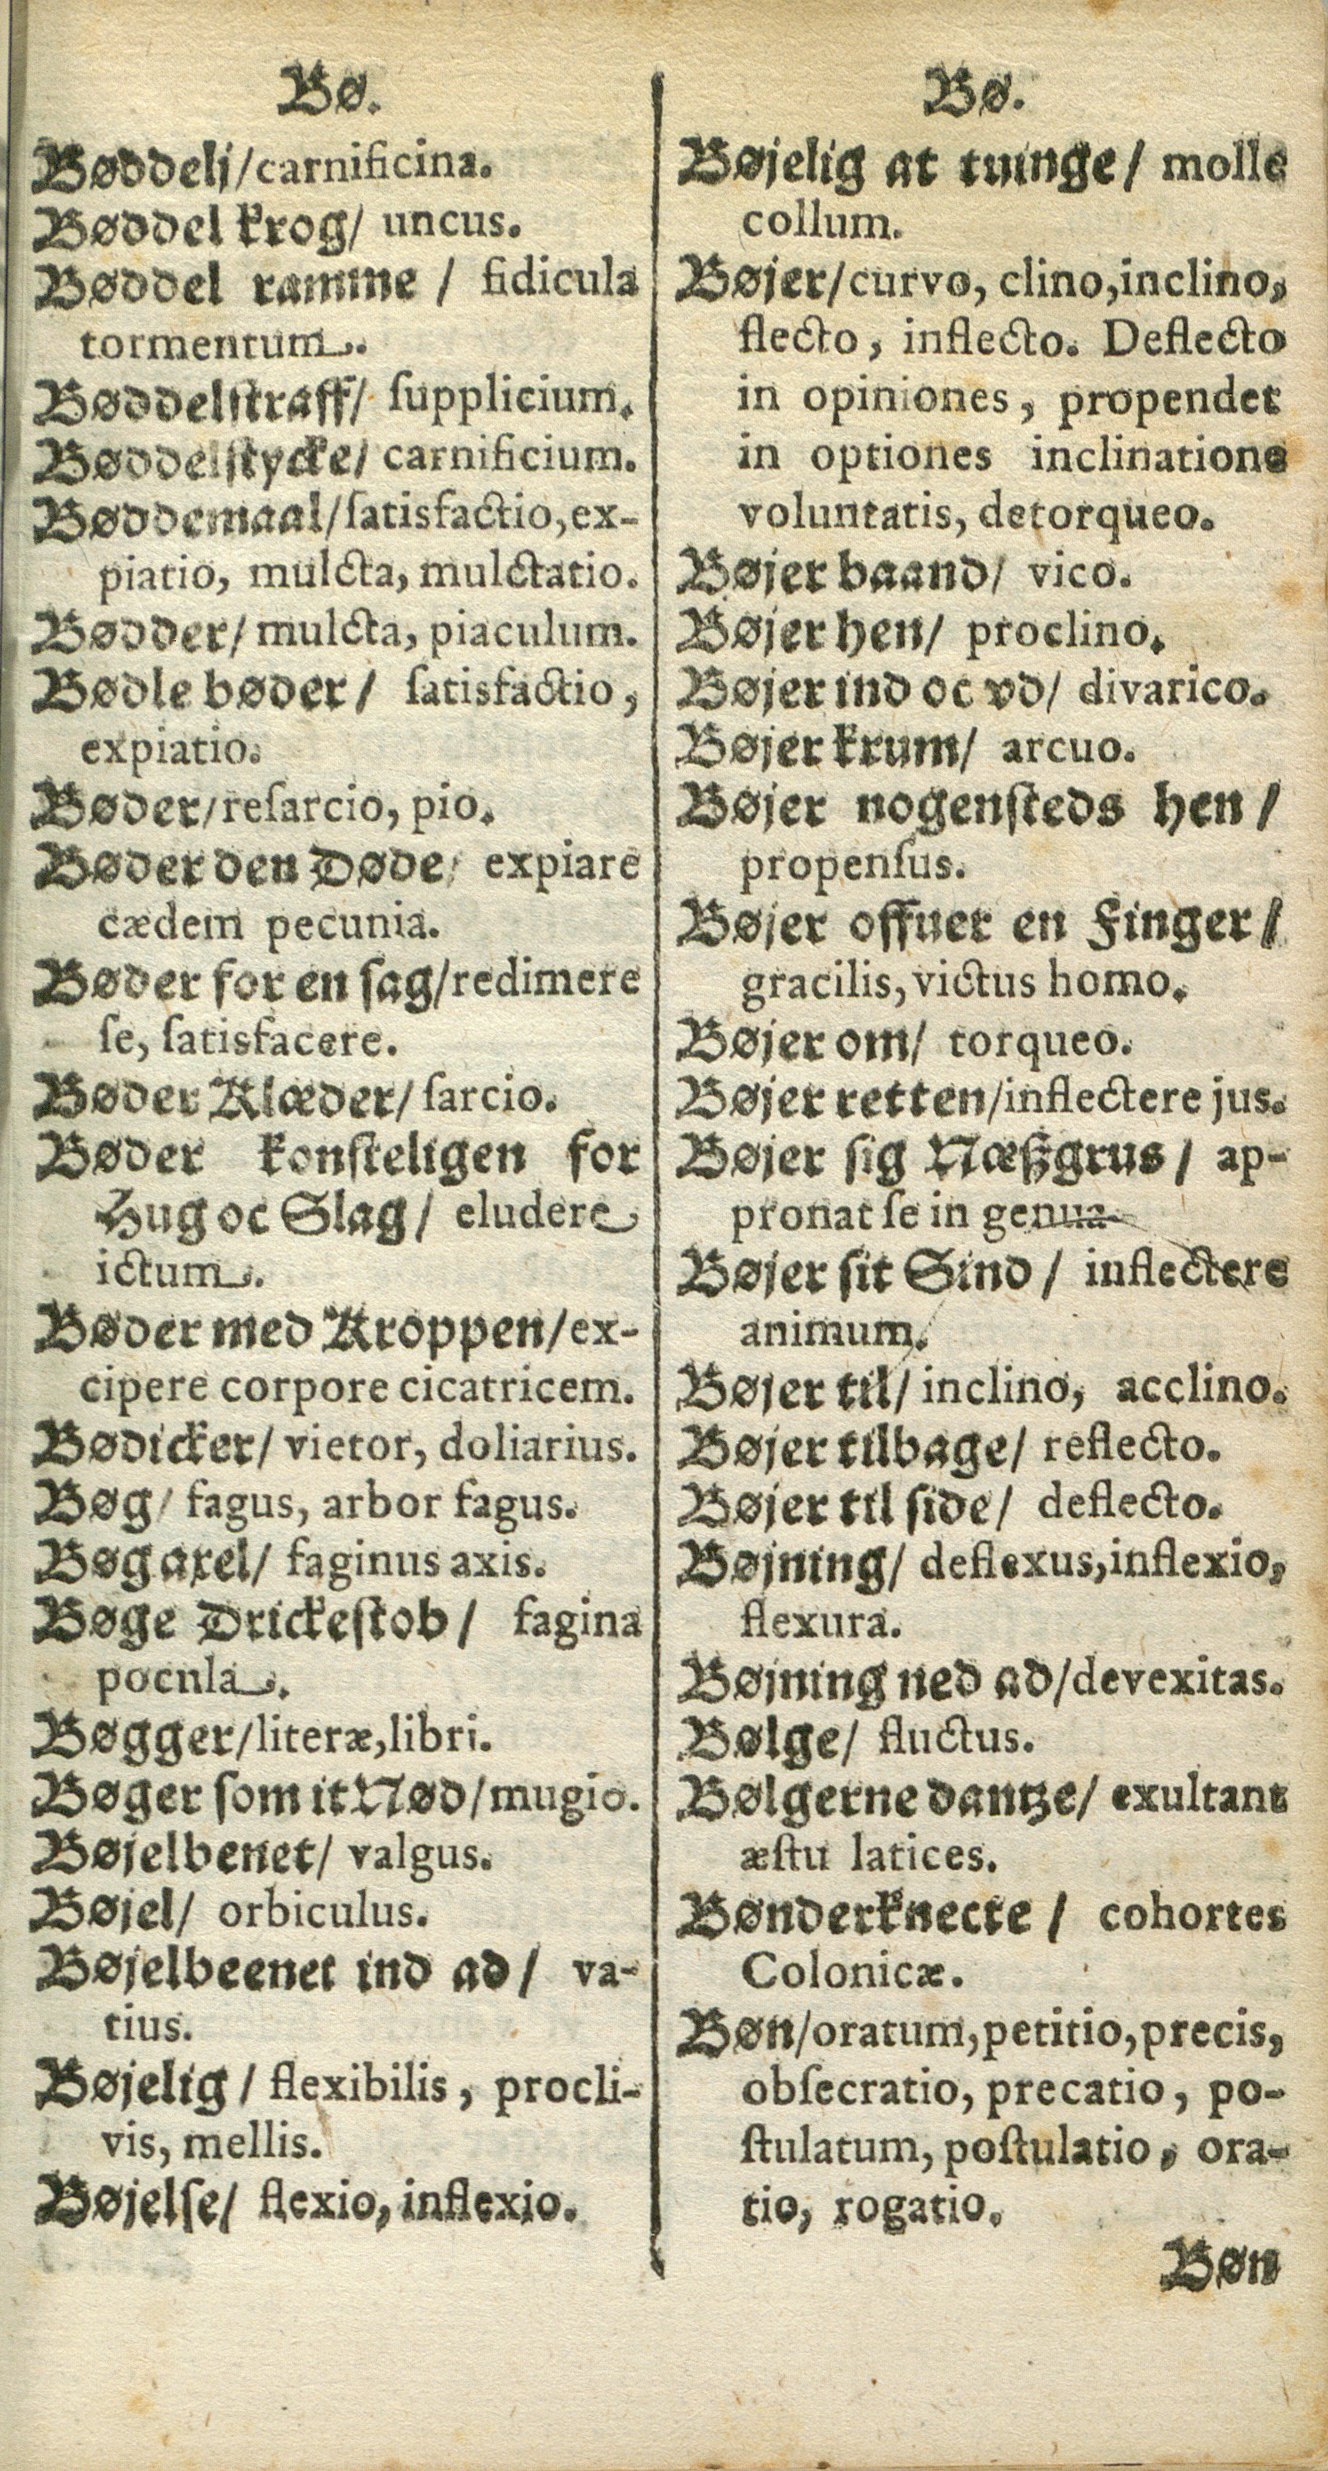 Bø.
Bøddelj/carnificina.
Bøddel krog/ uncus.
Bøddel ramme / fidicula
tormentum.
Bøddelstraff/ ſupplicium.
Bøddelstycke/ carnificium.
Bøddemaal/ſatisfactio, ex-
piatio, mulcta, mulctatio.
Bødder/ mulcta, piaculum.
Bødle bøder/ ſatisfactio,
expiatio.
Bøder/reſarcio, pio.
Bøder den Døde/ expiare
cædem pecunia.
Bøder for en ſag/redimere
ſe, ſatisfacere.
Bøder Klæder/ ſarcio.
Bøder konſteligen for
Hug oc Slag/ eludere
ictum.
Bøder med Kroppen/ex-
cipere corpore cicatricem.
Bødicker/ vietor, doliarius.
Bøg/ fagus, arbor fagus.
Bøg axel/ faginus axis.
Bøge Drickeſtob/ fagina
pocula.
Bøgger/literæ, libri.
Bøger ſom it Nød/mugio.
Bøjelbenet/ valgus.
Bøjel/ orbiculus.
Bøjelbeenet ind ad/ va-
tius.
Bøjelig/ flexibilis, procli-
vis, mellis.
Bøjelſe/ flexio, inflexio.
Bø.
Bøjelig at tuinge/ molle
collum.
Bøjer/curvo, clino, inclino,
flecto, inflecto. Deflecto
in opiniones, propendet
in optiones inclinatione
voluntatis, detorqueo.
Bøjer baand/ vico.
Bøjer hen/ proclino.
Bøjer ind oc vd/ divarico.
Bøjer krum/ arcuo.
Bøjer nogenſteds hen/
propenſus.
Bøjer offuer en Finger/
gracilis, victus homo.
Bøjer om/ torqueo.
Bøjer retten/inflectere jus.
Bøjer ſig Næßgrus/ ap-
pronat ſe in genua
Bøjer ſit Sind/ inflectere
animum.
Bøjer til/ inclino, acclino.
Bøjer tilbage/ reflecto.
Bøjer til ſide/ deflecto.
Bøjning/ deflexus, inflexio,
flexura.
Bøjning ned ad/devexitas.
Bølge/ fluctus.
Bølgerne dantze/ exultant
æſtu latices.
Bønderknecte/ cohortes
Colonicæ.
Bøn/oratum, petitio, precis,
obſecratio, precatio, po-
ſtulatum, poſtulatio, ora-
tio, rogatio.
Bøn